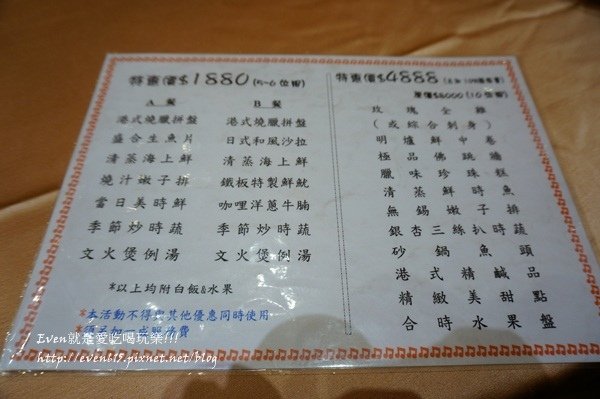 特惠價$1880(5~6位用)
A 餐
港式燒臘拼盤
盛合生魚片
清蒸海上鮮
燒汁嫩子排
當日美時鮮
季節炒時蔬
文火煲例湯
B 餐
港式燒臘拼盤
日式和風沙拉
清蒸海上鮮
鐵板特製鮮魷
咖哩洋蔥牛腩
季節炒時蔬
文火煲例湯
*以上均附白飯&水果
*本活動不得與其他優惠同時使用
*須另加一成服務費
特惠價$4888
原價$8000(10位用)
玫瑰全雞
(或綜合刺身)
明爐鮮中卷
極品佛跳牆
臘味珍珠糕
清蒸鮮時魚
無錫嫩子排
銀杏三絲扒時蔬
砂鍋魚頭
港式精鹹品
精緻美甜點
合時水果盤
Even就是愛吃喝玩樂!!!
http://even619.pixnet.net/blog